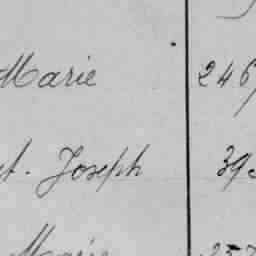 Marie 246
t. Joseph 39
Marie 257